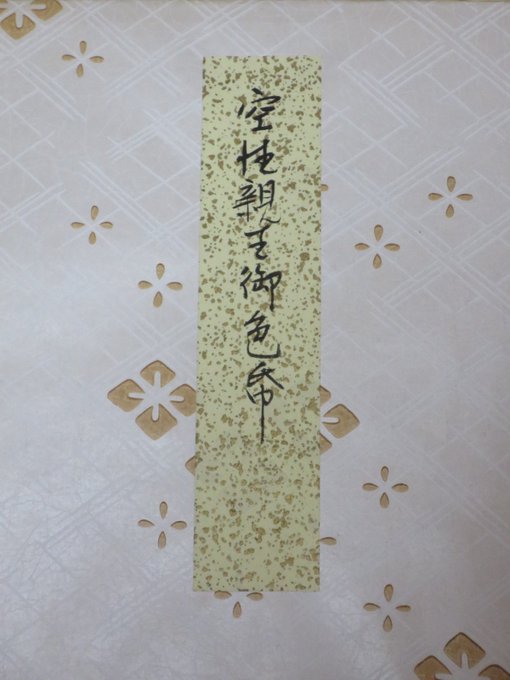 空性親王御色帋